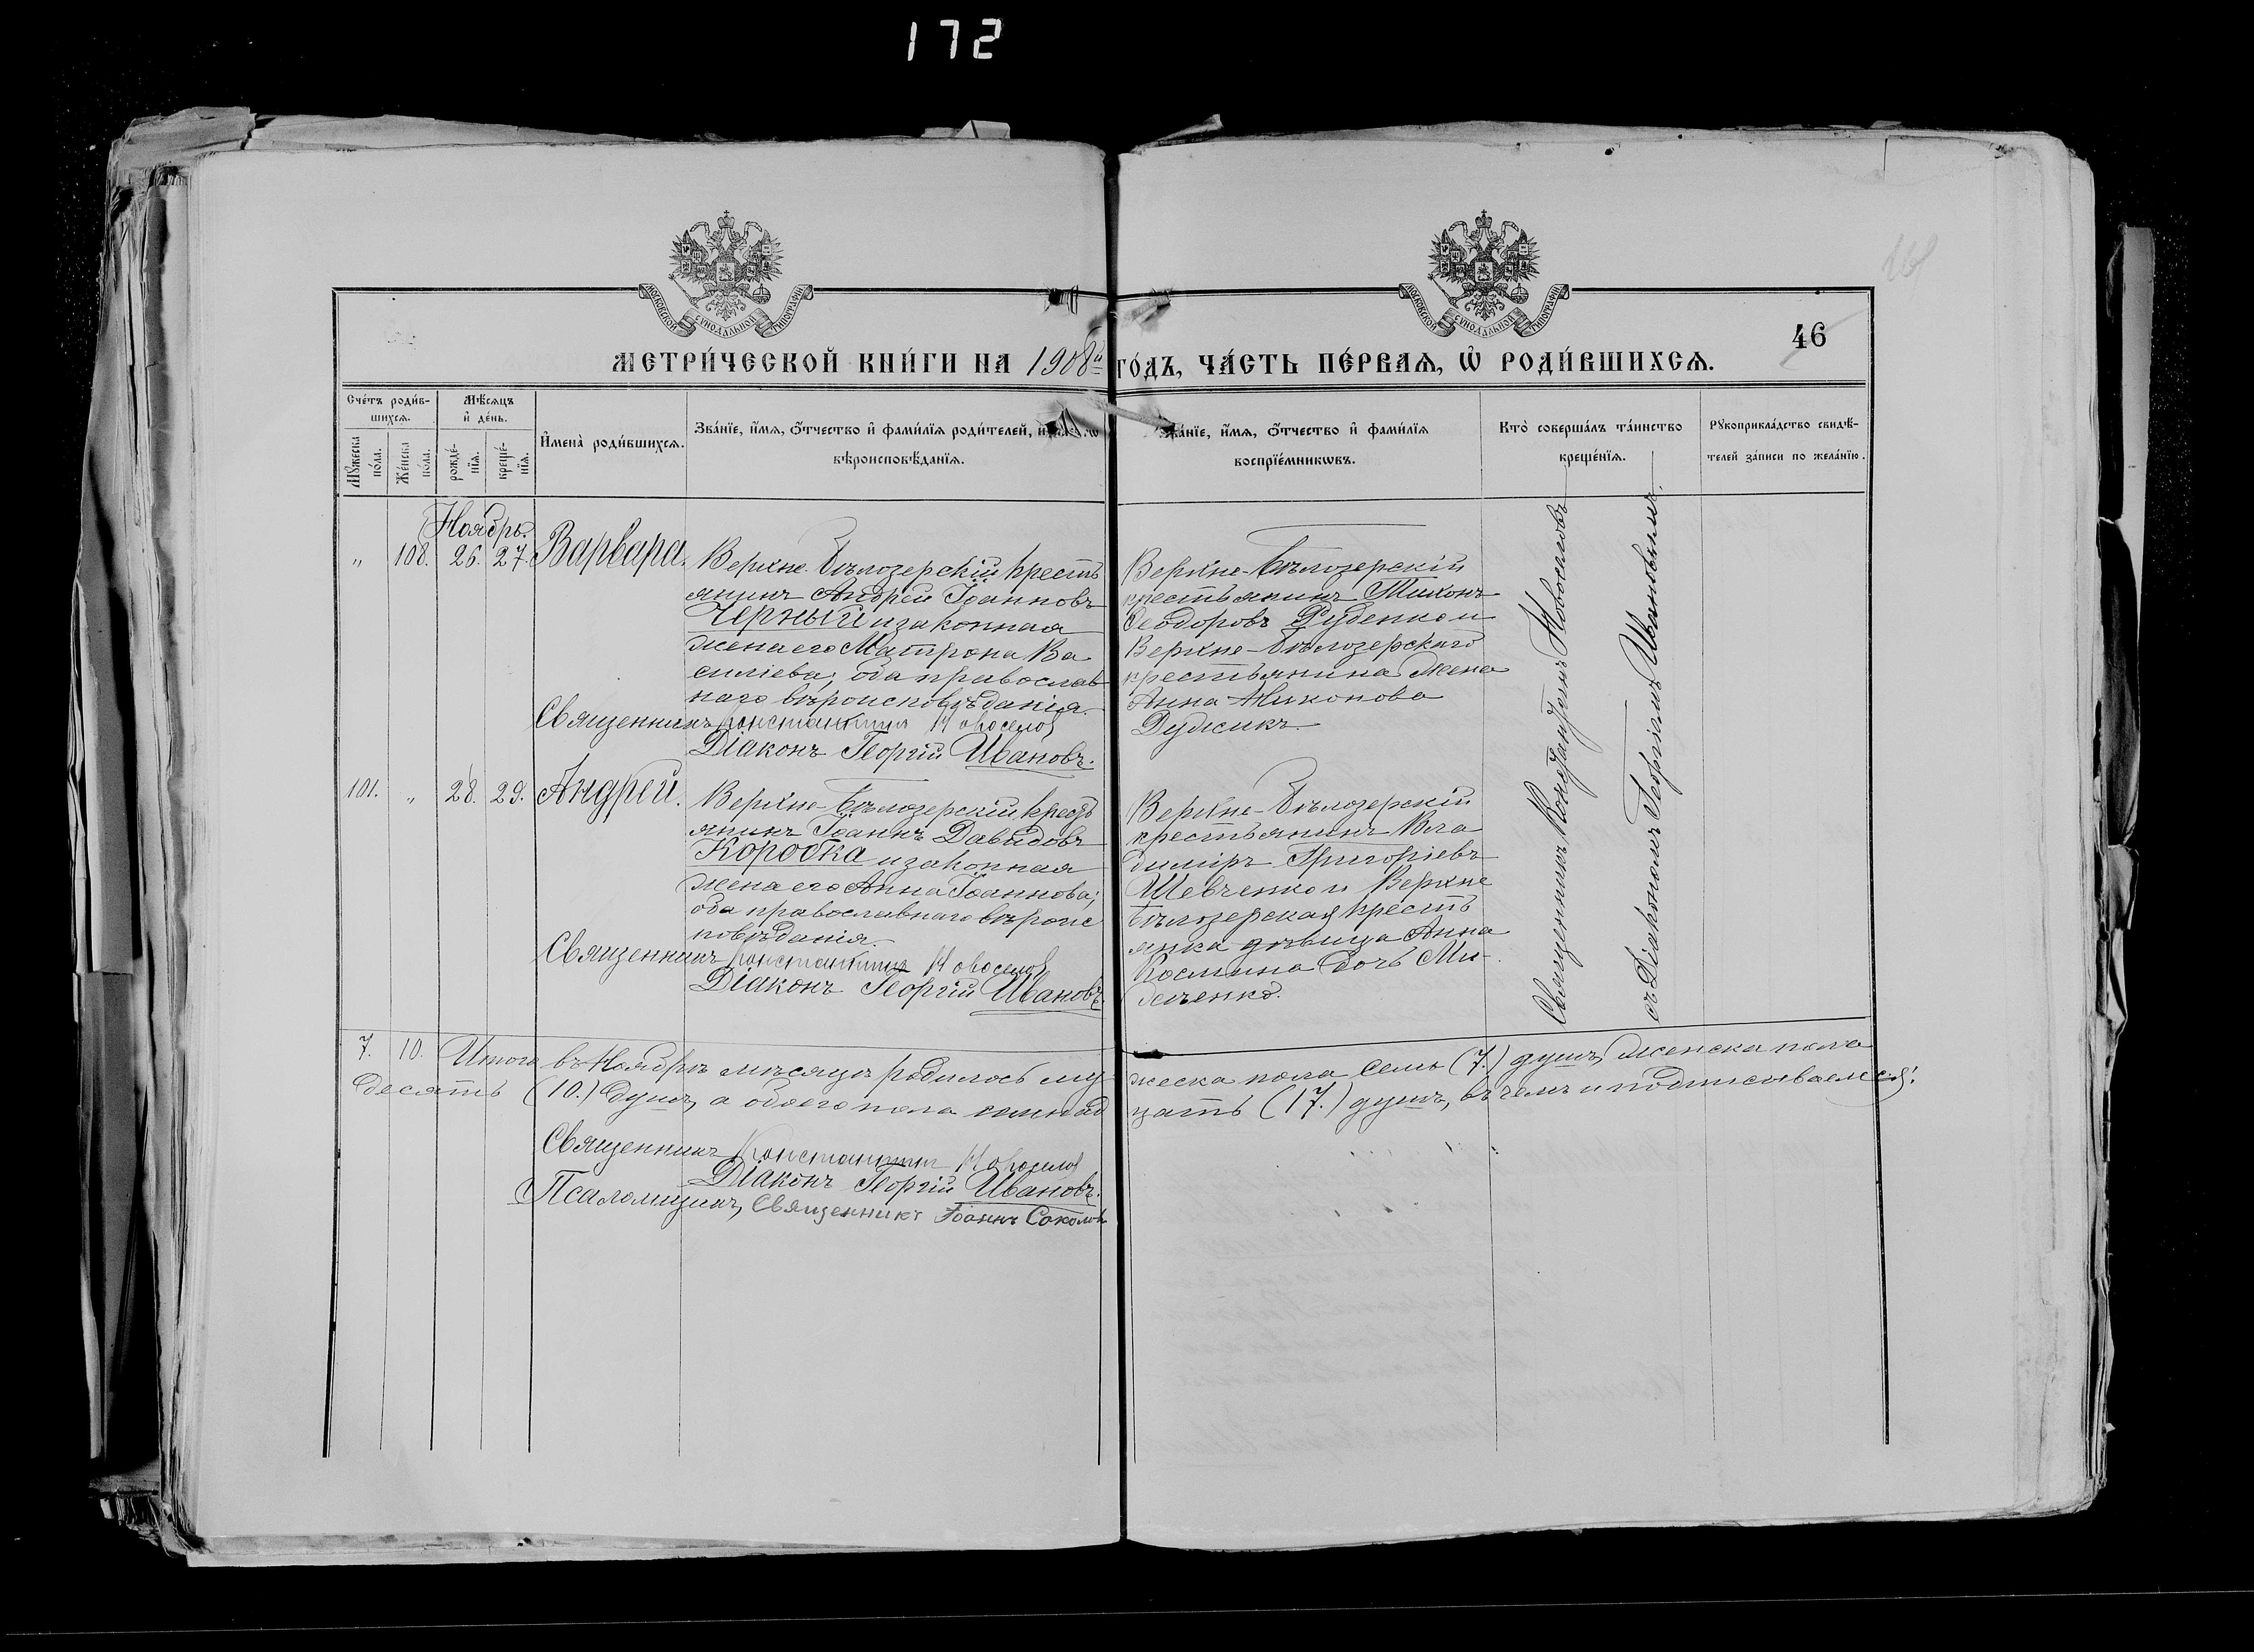 172
МОСКОВСКОЙ СѴНОДАЛЬНОЙ ТИПОГРАФІИ
МОСКОВСКОЙ СѴНОДАЛЬНОЙ ТИПОГРАФІИ
46
МЕТРИ́ЧЕСКОЙ КНИ́ГИ НА 1908й ГО́ДЪ, ЧА́СТЬ ПЕ́РВАѦ, Ѡ҆ РОДИ́ВШИХСѦ.
Сче́тъ роди́в-
шихсѧ.
Мѹ́жеска по́ла.
Же́нска по́ла.
Мѣ́сѧцъ
и҆ де́нь.
рожде́-
нїѧ.
креще́-
нїѧ.
И҆мена̀ роди́вшихсѧ.
Зва́нїе, и҆́мѧ, ѻ҆́тчество и҆ фами́лїѧ роди́телей, и҆
вѣроисповѣ́данїѧ.
Зва́нїе, и҆́мѧ, ѻ҆́тчество и҆ фами́лїѧ
воспрїе́мникѡвъ.
Кто̀ соверша́лъ та́инство
креще́нїѧ.
Рѹкоприкла́дство свидѣ́-
телей за́писи по жела́нїю.
Ноябрь.
„ 108. 26. 27. Варвара.
Верхне-Бѣлозерскій кресть
янинъ Андрей Іоанновъ
Черный и законная
жена его Матрона Ва
силіева; оба православ
наго вѣроисповѣданія.
Священникъ Константинъ Новоселов
Діаконъ Георгій Ивановъ.
Верхне-Бѣлозерскій
крестьянинъ Тихонъ
Ѳеодоровъ Руденко и
Верхне-Бѣлозерскаго
крестьянина жена
Анна Никонова
Дудникъ.
101. „ 28. 29. Андрей.
Верхне-Бѣлозерскій крест
янинъ Іоаннъ Давидовъ
Коробка и законная
жена его Анна Іоаннова;
оба православнаго вѣроис
повѣданія.
Священникъ Константинъ Новоселов
Діаконъ Георгій Ивановъ.
Верхне-Бѣлозерскій
крестьянинъ Вла
диміръ Григоріевъ
Шевченко и Верхне
Бѣлозерская кресть
янка дѣвица Анна
Космина дочь Ми-
Священникъ Константинъ Новоселовъ
съ Діакономъ Георгіемъ Ивановымъ.
7. 10. Итого въ Ноябрѣ мѣсяцѣ родилось му жеска пола семь (7.) душъ, женска пола
десять (10.) душъ, а обоего пола семнад цать (17.) душъ, въ чемъ и подписываемся:
Священникъ Константинъ Новоселов
Діаконъ Георгій Ивановъ.
Псаломщикъ, Священникъ Іоаннъ Соколовъ